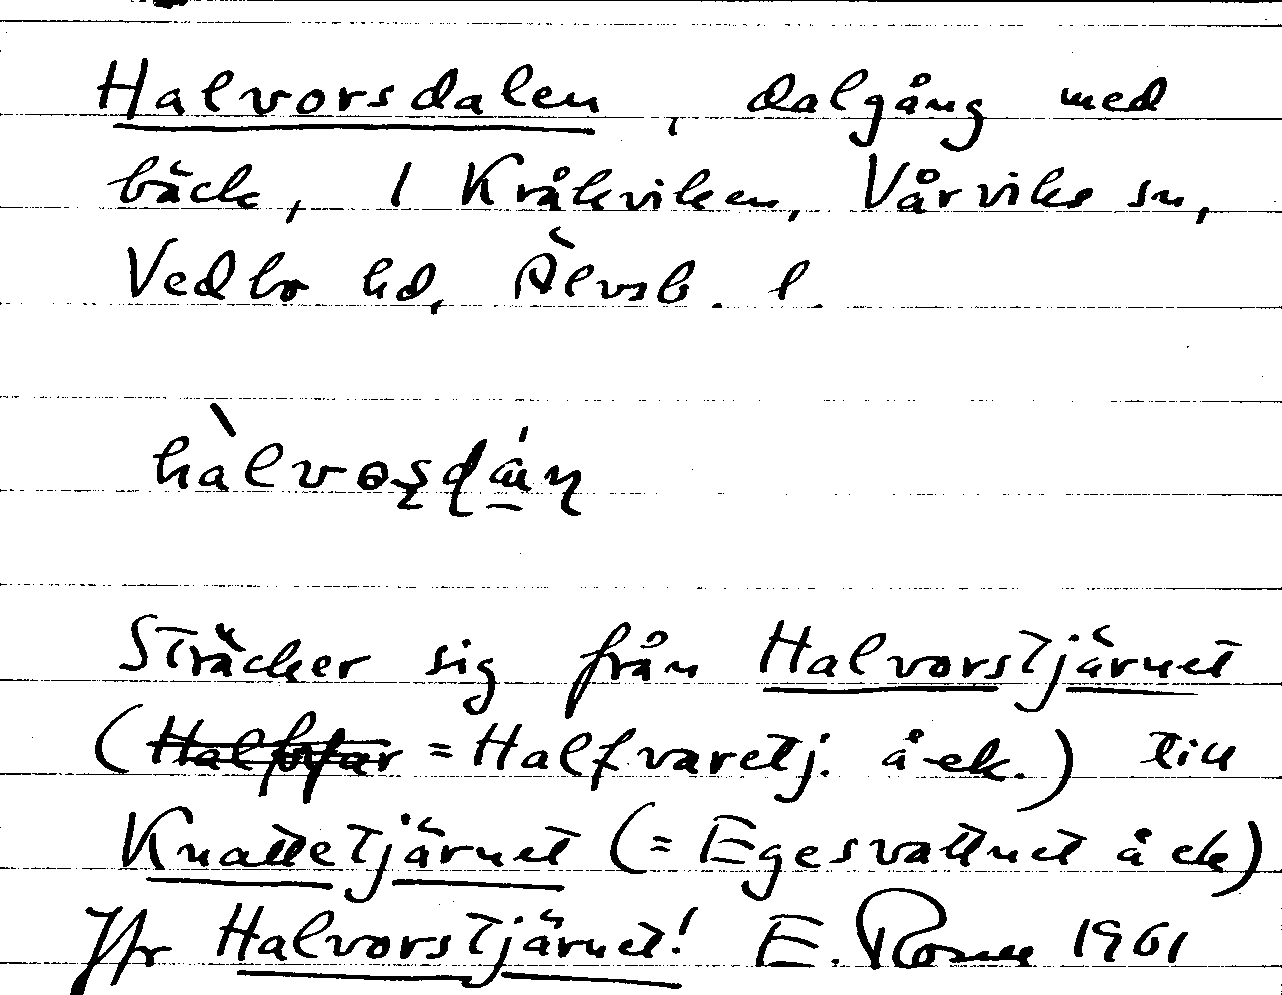 Halvorsdalen, dalgång med
bäck, 1 Kråkviken, Vårviks sn,
Vedbo hd, Älvsb. l.
hàlvoşḍáṇ
Sträcker sig från Halvorstjärnet
(= Halfvaretj. å ek.) till
Knattetjärnet (= Egesvattnet å ek)
Jfr Halvorstjärnet! E. Rosell 1961